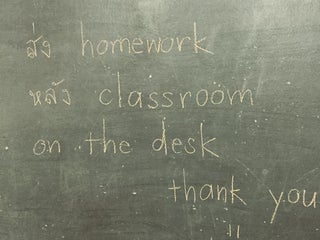 ส่ง homework
หลัง classroom
on the desk
thank you